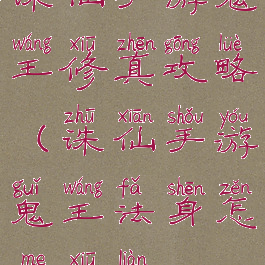 诛仙手游鬼
wáng xiū zhēn gōng lüè
王修真攻略
zhū xiān shǒu yóu
（诛仙手游
guǐ wáng fǎ shēn zěn
鬼王法身怎
me xiū liàn